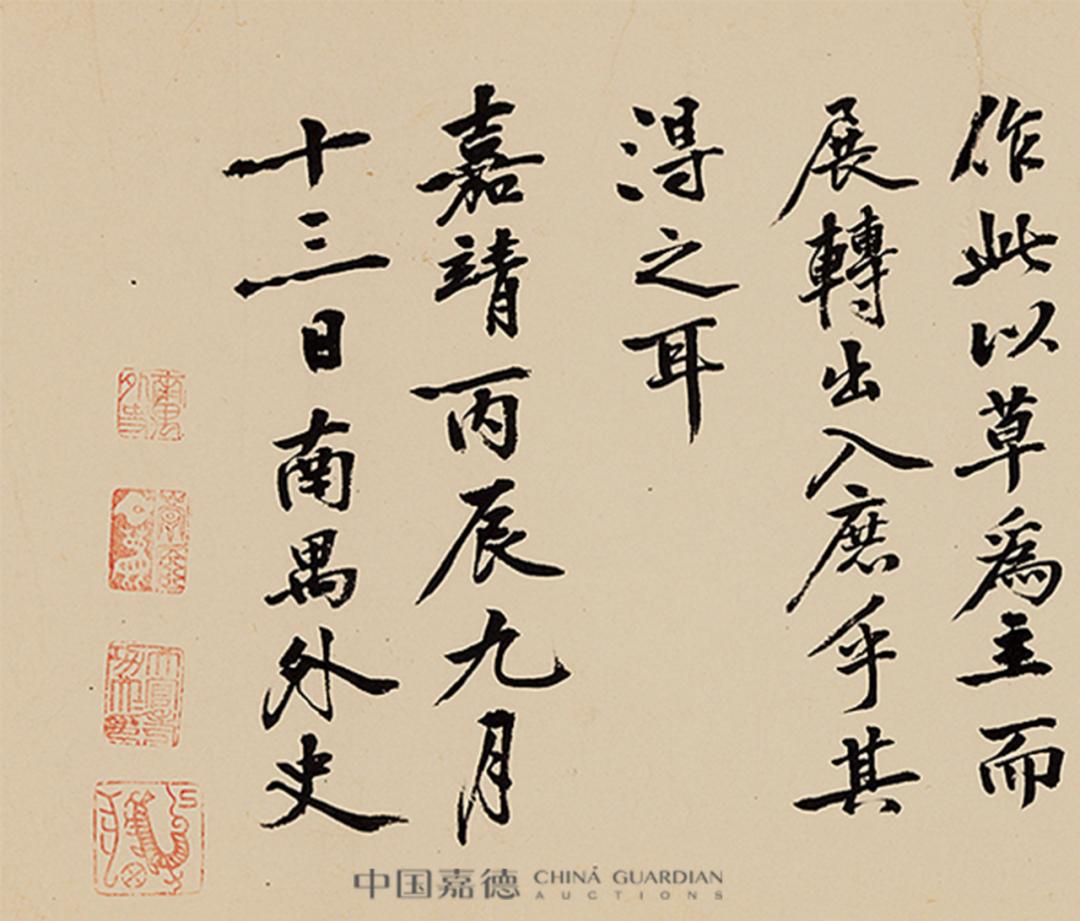 作此以草爲主而
展轉出入庶乎其
得之耳
嘉靖丙辰九月
十三日南禺外史
南禺外史
中国嘉德 CHINA GUARDIAN
AUCTIONS